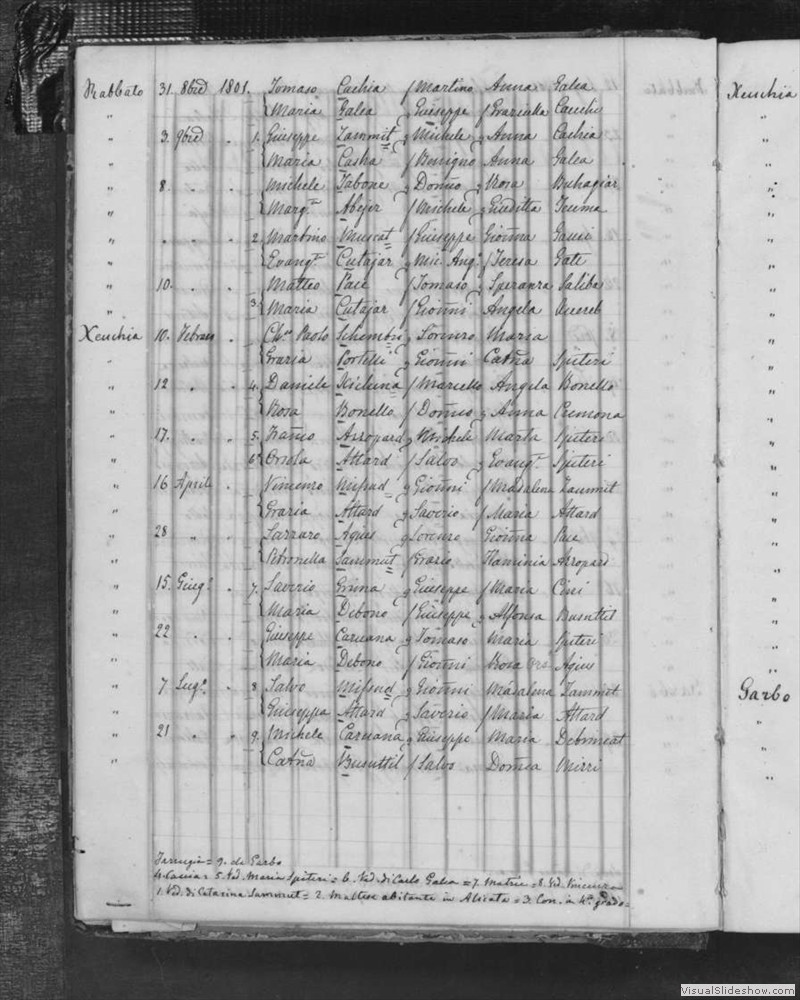 Rabbato 31. 8bre 1801. Tomaso Cachia / Martino Anna Galea
" Maria Galea Giuseppe / Graziulla Cacchi
" 3. 9bre . 1. Giuseppe Zammit Michele Anna Cachia
" Maria Casha / Benigno Anna Galea
" 8. . . Michele Tabone Domco Rosa Buhagiar
" Marga Abejer / Michele Giuditta Teuma
" " . . 2. Martino Muscat / Giuseppe Gionna Gauci
" Evangta Cutajar Mic. Ang. / Teresa Gatt
" 10. . . Matteo Pace / Tomaso Speranza Saliba
" 3. Maria Cutajar / Gionni Angela Xuereb
Xeuchia 10. Febraro . Paolo Schembri Lorenzo Maria
" Grazia Portelli Gionni Catna Spiteri
" 12 . . 4. Daniele / Marcello Angela Bonello
" Rosa Bonello / Domco Anna Cremona
" 17. . . 5. Franco Azzopard Michele Marta Spiteri
" 6. Orsola Attard / Salvo Evangta Spiteri
" 16 Aprile . Vincenzo Mifsud Gionni / Madalena Zammit
" Grazia Attard Saverio / Maria Attard
" 28 " . Lazzaro Agius Lorenzo Gionna Pace
" Petronella Sammut / Grazio Flaminia Azzopard
" 15. Giugo . 7. Saverio Grima Giuseppe / Maria Cini
" Maria Debono / Giuseppe Alfonsa Busuttil
" 22 . . Giuseppe Caruana Tomaso Maria Spiteri
" Maria Debono / Gionni Rosa Agius
" 7 Lugo . 8 Salvo Mifsud Gionni Madalena Zammit
" Giuseppa Attard Saverio / Maria Attard
" 21 . . 9. Michele Caruana Giuseppe Maria Debrincat
" Catna Busuttil / Salvo Domca Mizzi
Farrugia = 9. de Garbo
4. Caccia = 5. Ved. Maria Spiteri = 6. Ved. di Carlo Galea = 7. Matrice = 8. Ved. Vincenza
1. Ved. di Catarina Sammut = 2. Maltese abitante in Alicata = 3. Con. in 4o. grado =
Xeuchia
"
"
"
"
"
"
"
Garbo
"
"
"
VisualSlideshow.com